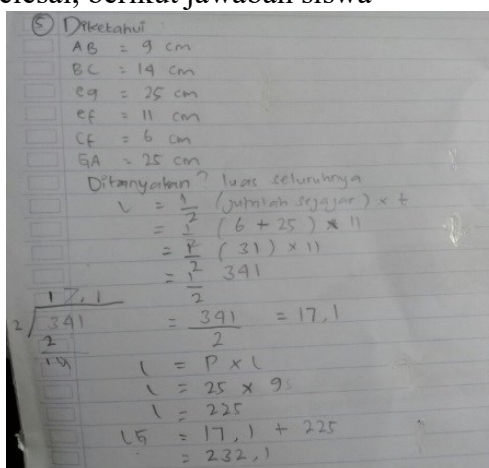 elesai, berikut jawaban siswa
5 Diketahui
AB = 9 cm
BC = 14 cm
eg = 25 cm
ef = 11 cm
CF = 6 cm
GA = 25 cm
Ditanyakan? luas seluruhnya
L = 1/2 (jumlah sejajar) x t
= 1/2 (6 + 25) x 11
= 1/2 (31) x 11
= 1/2 341
= 341/2 = 17,1
17,1
2/341
2
14
L = P x L
L = 25 x 9
L = 225
= 17,1 + 225
= 232,1